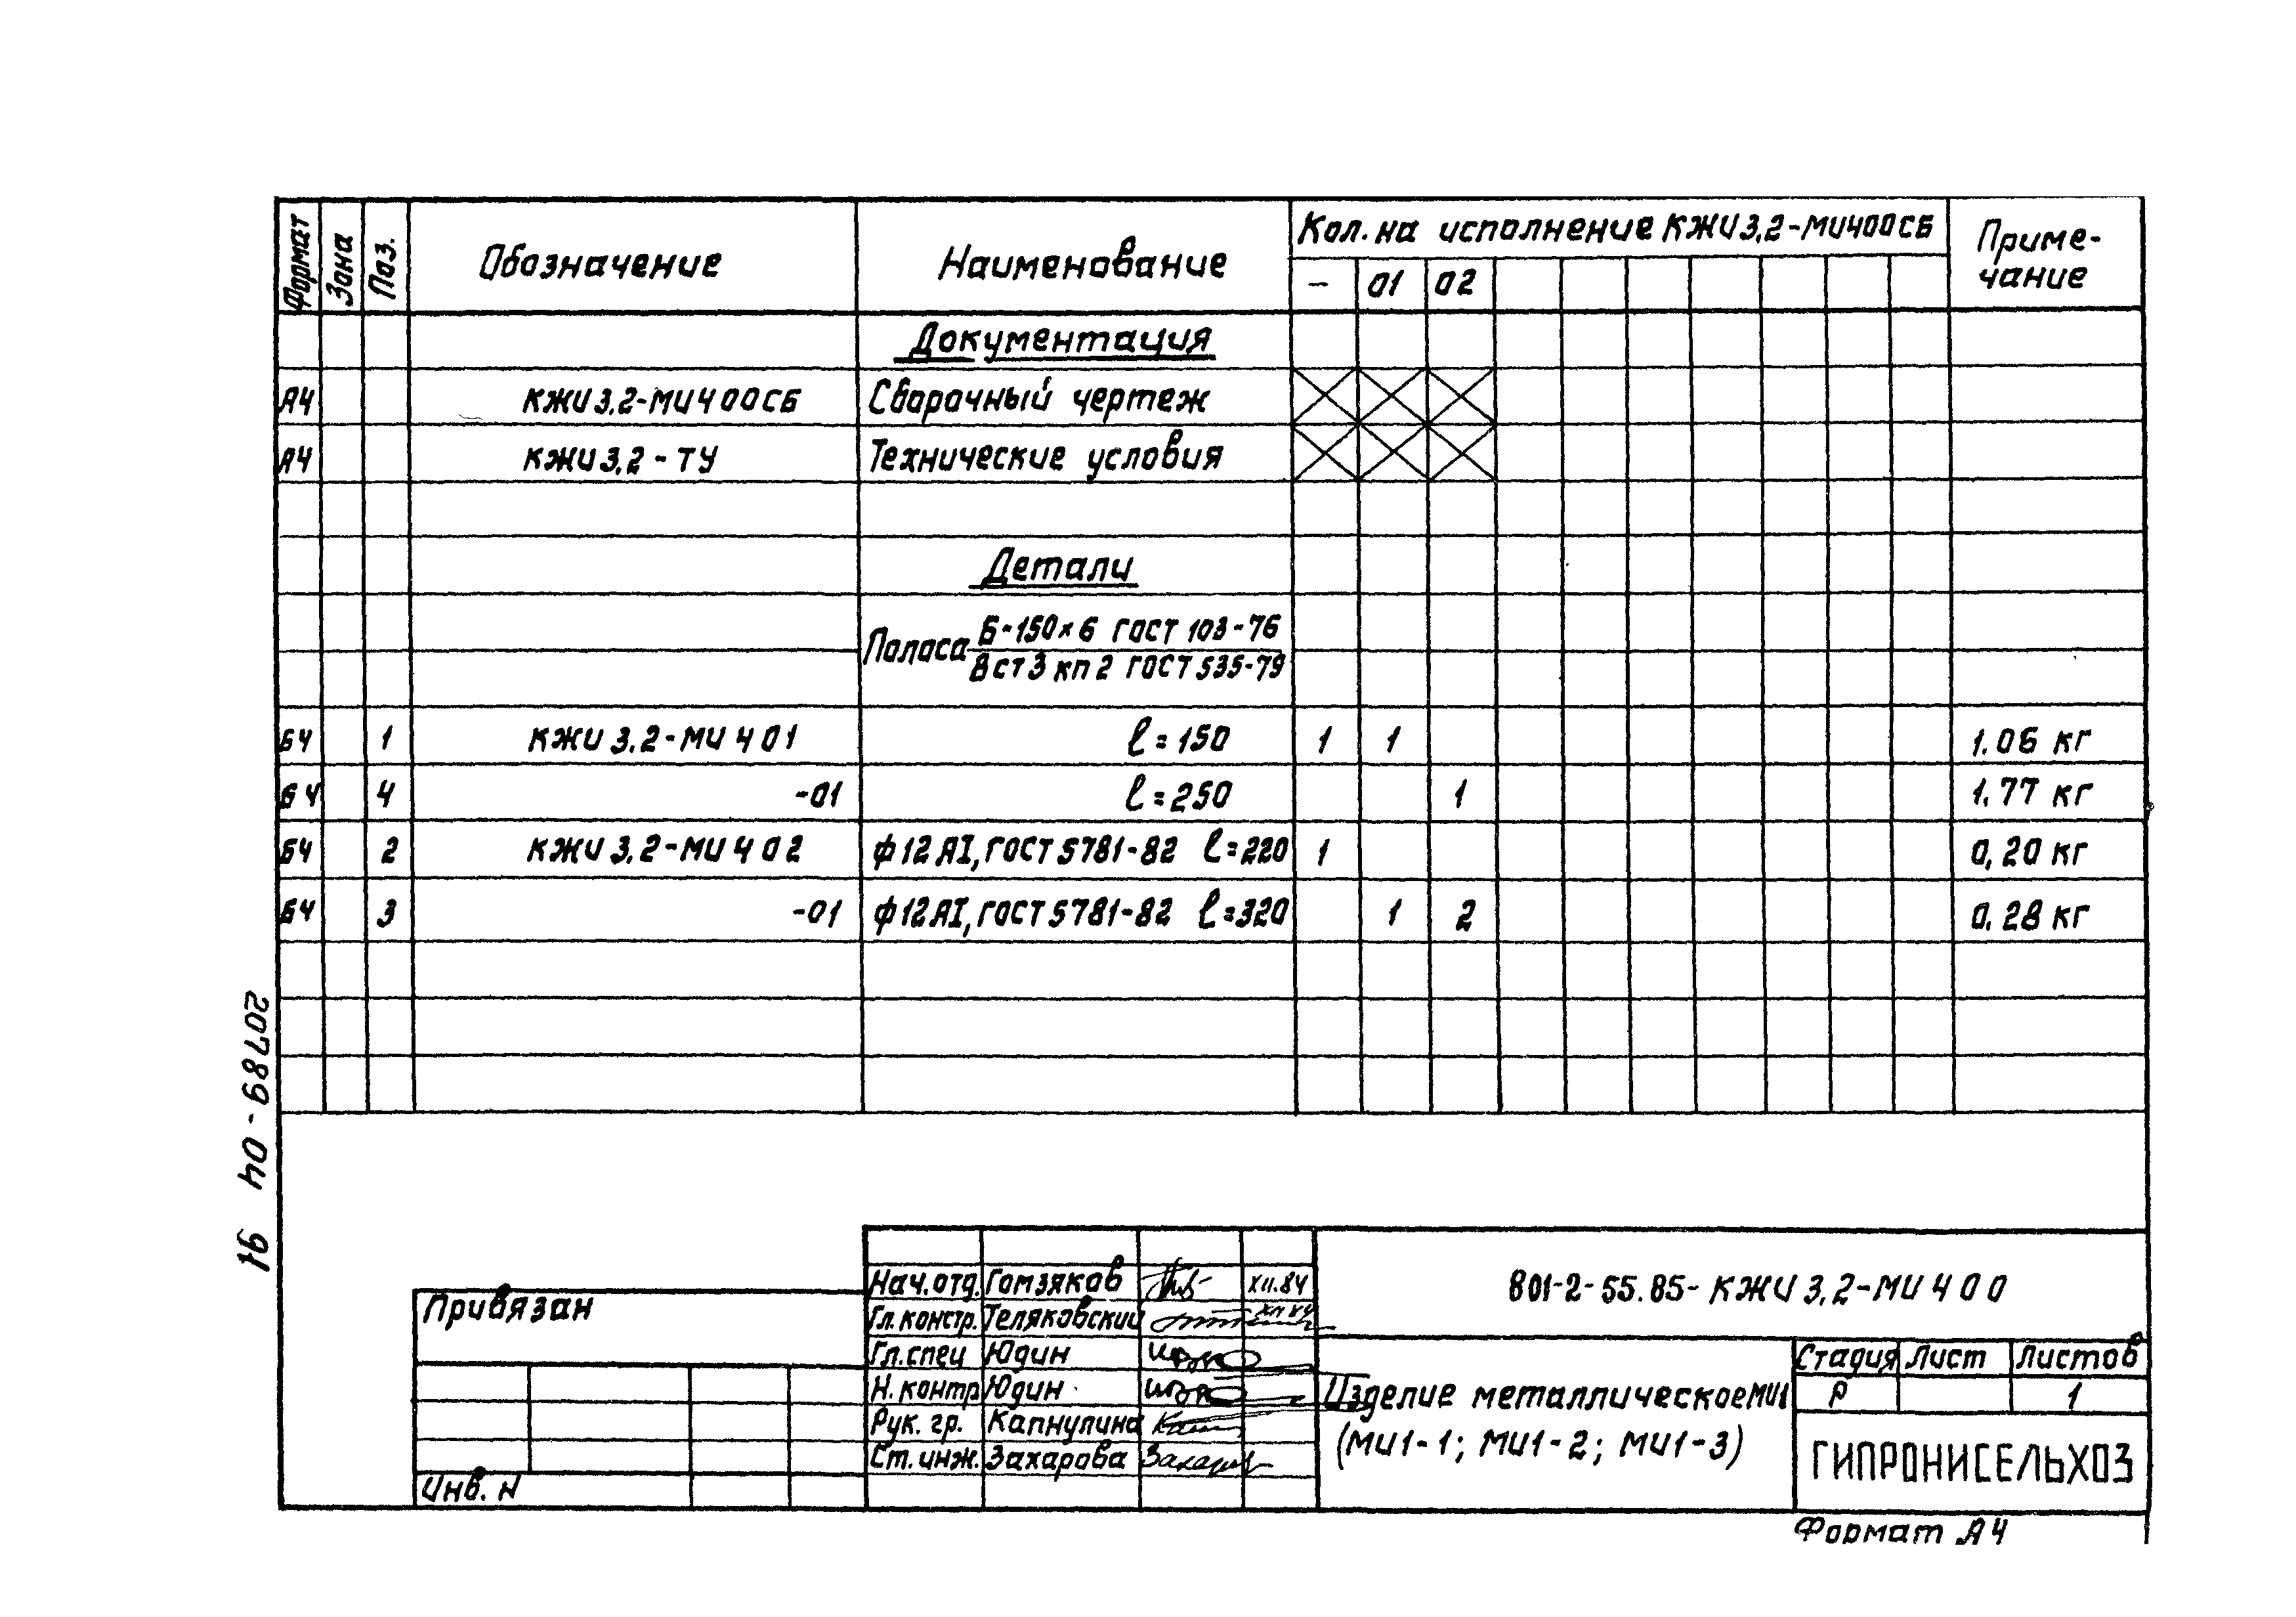 Формат Зона Поз. Обозначение Наименование Кол. на исполнение КЖИ3.2-МИ400СБ Приме-
чание
- 01 02
Документация
А4 КЖИ3.2-МИ400СБ Сборочный чертеж
А4 КЖИ3.2-ТУ Технические условия
Детали
Полоса Б-150×6 ГОСТ 103-76
Вст3кп2 ГОСТ 535-79
БЧ 1 КЖИ3.2-МИ401 ℓ=150 1 1 1.06 кг
БЧ 4 -01 ℓ=250 1 1.77 кг
БЧ 2 КЖИ3.2-МИ402 ф12АI, ГОСТ 5781-82 ℓ=220 1 0,20 кг
БЧ 3 -01 ф12АI, ГОСТ 5781-82 ℓ=320 1 2 0.28 кг
20789-04 91
Привязан
Инв. N
Нач. отд. Гомзяков XII.84
Гл. констр. Теляковский XII 84
Гл. спец Юдин
Н. контр Юдин
Рук. гр. Капнулина
Ст. инж. Захарова
801-2-55.85-КЖИ3.2-МИ400
Изделие металлическое МИ1
(МИ1-1; МИ1-2; МИ1-3)
Стадия Лист Листов
Р 1
ГИПРОНИСЕЛЬХОЗ
Формат А4